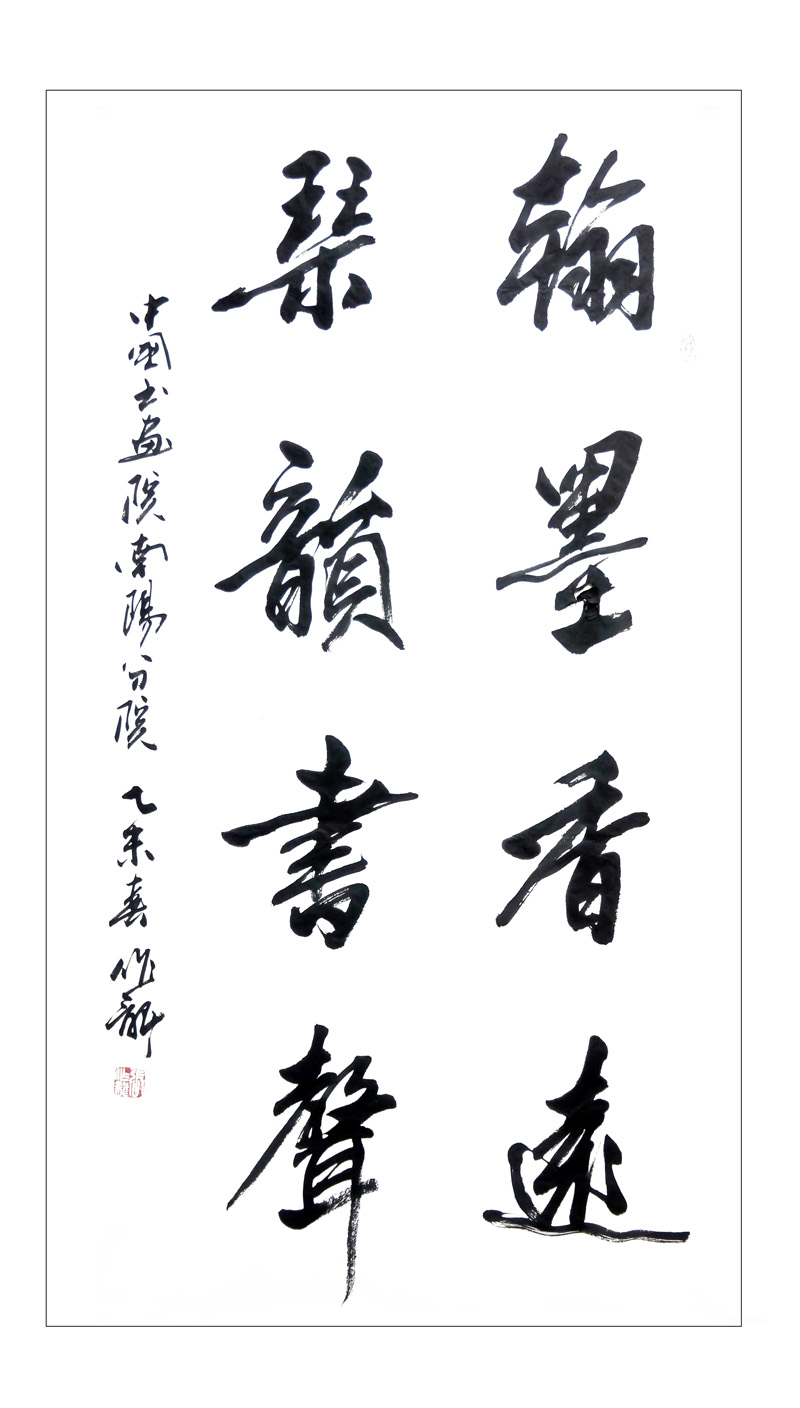 翰墨香遠
琴韻書聲
中國书画院南陽分院 乙未春 作龢